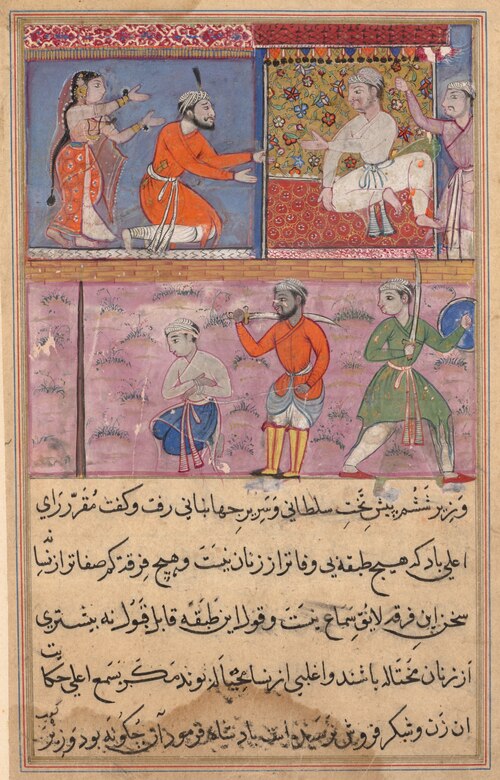 وزیر ششم پیش تخت سلطانی و سریر جهانبانی رفت و کفت مقرر رای
اعلی باد که هیچ طبقه بی وفاتر از زنان نیست و هیچ فرقه کم صفاتر از نسا نه
سخن این فرقه لایق سماع نیست و قول این طبقه قابل قبول نه بیشتری
از زنان محتاله باشند و اغلبی از نسا مختاله بوند مکر بسمع اعلی حکایت
ان زن و شکر فروش نرسیده است پادشاه فرمود آن چکونه بود وزیر کفت